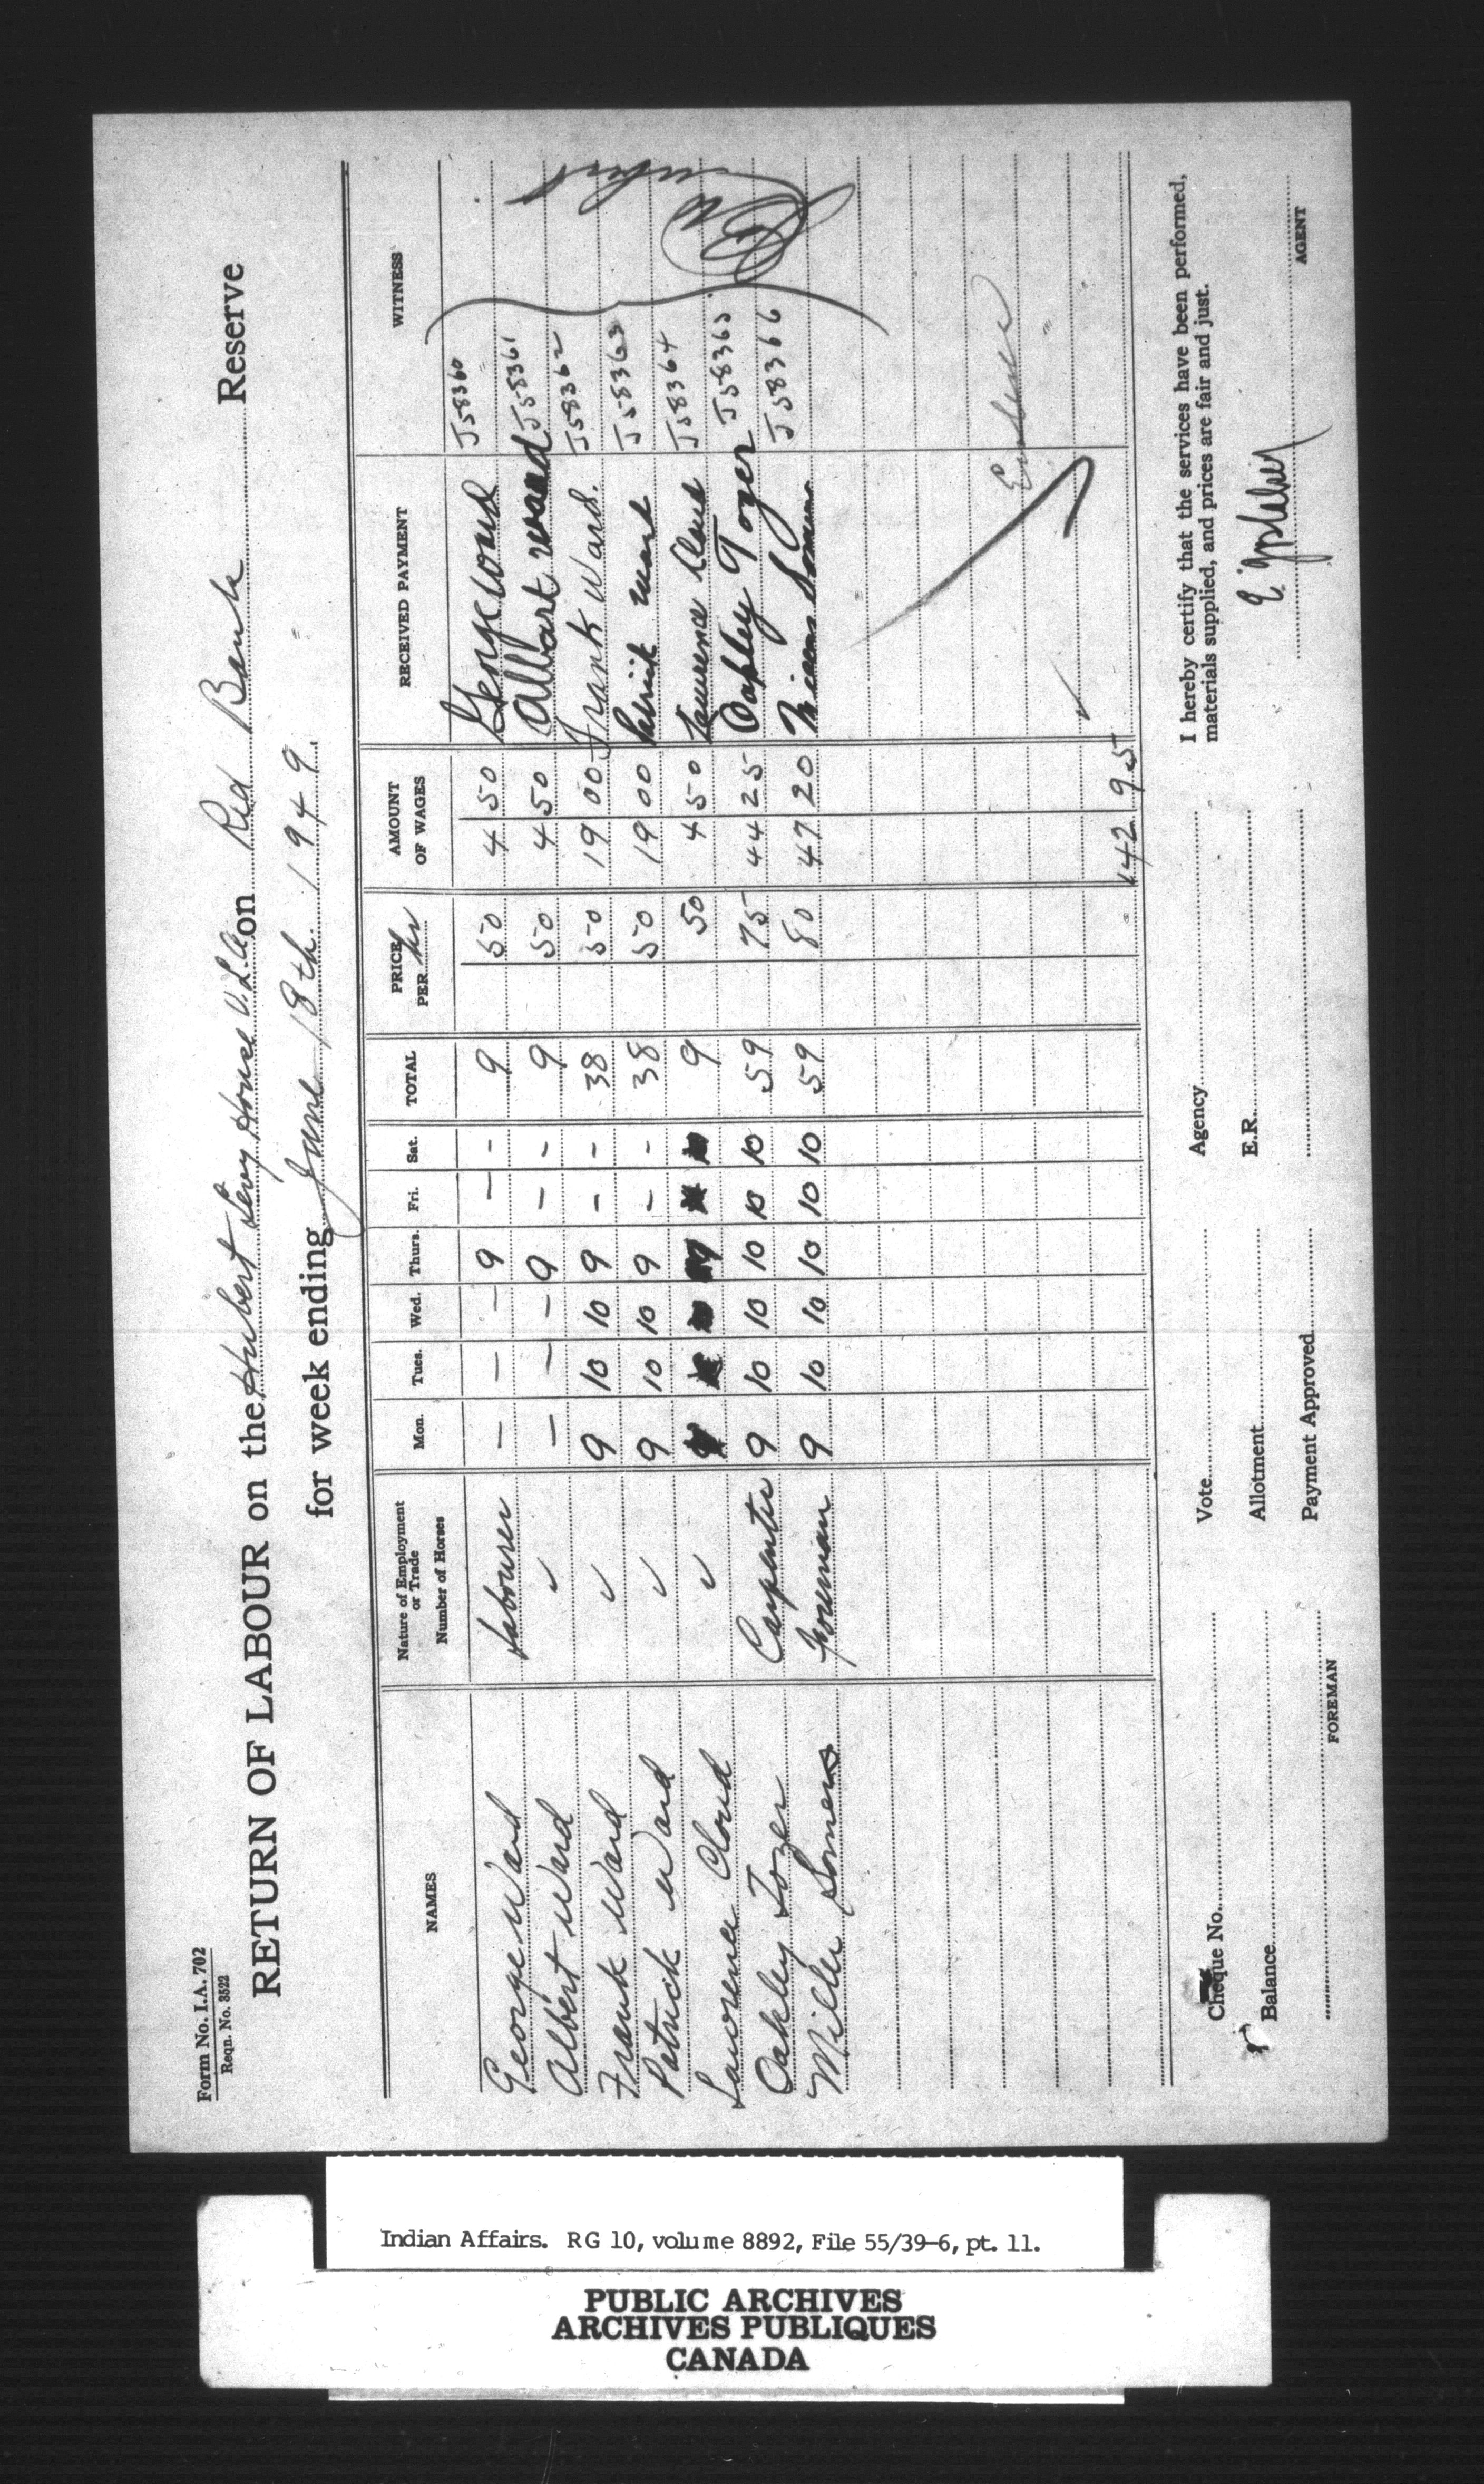 Form No. I.A. 702
Reqn. No. 3522
RETURN OF LABOUR on the Hubert Levy House V.L.A. on Red Bank Reserve
for week ending June 18th. 1949.
NAMES Nature of Employment or Trade Number of Horses Mon. Tues. Wed. Thurs. Fri. Sat. TOTAL PRICE PER hr AMOUNT OF WAGES RECEIVED PAYMENT WITNESS
George Ward Labourer — — — 9 — - 9 50 4 50 George Ward J58360
Albert Ward ✓ — — — 9 — - 9 50 4 50 Albart ward J58361
Frank Ward ✓ 9 10 10 9 - - 38 50 19 00 Frank Ward. J58362
Patrick Ward ✓ 9 10 10 9 - - 38 50 19 00 Patrick Ward J58363
Lawrence Cloud ✓ 9 9 50 4 50 Lawrence Cloud J58364
Oakley Tozer Carpenter 9 10 10 10 10 10 59 75 44 25 Oakley Tozer J58365
Miller Somers Foreman 9 10 10 10 10 10 59 80 47 20 Somers J58366
142 95
Cheque No. Vote Agency I hereby certify that the services have been performed,
materials supplied, and prices are fair and just.
Balance Allotment E.R.
Payment Approved
FOREMAN AGENT
Indian Affairs. RG 10, volume 8892, File 55/39-6, pt. 11.
PUBLIC ARCHIVES
ARCHIVES PUBLIQUES
CANADA